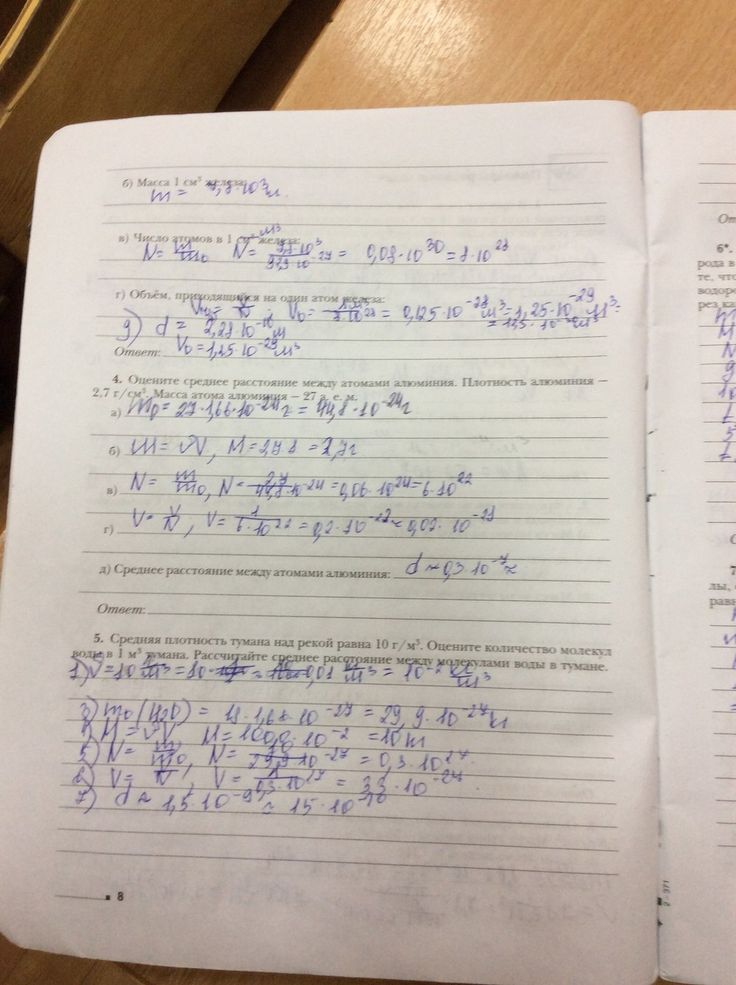 б) Масса 1 см³ железа:
m = 7,8·10³ кг
в) Число атомов в 1 см³ железа: м³
N = m/m₀ N = 7,8·10³/93,3·10⁻²⁷ = 0,08·10³⁰ = 8·10²⁸
г) Объём, приходящийся на один атом железа:
V₀ = V/N ; V₀ = 1 м³/8·10²⁸ = 0,125·10⁻²⁸ м³ = 1,25·10⁻²⁹ м³ =
д) d = 2,28·10⁻¹⁰ м
Ответ: V₀ = 1,25·10⁻²⁹ м³
4. Оцените среднее расстояние между атомами алюминия. Плотность алюминия —
2,7 г/см³. Масса атома алюминия — 27 а. е. м.
а) m₀ = 27·1,66·10⁻²⁴ г = 44,8·10⁻²⁴ г
б) m = ρV, M =
в) N = m/m₀, N = 2,7/44,8·10⁻²⁴ = 0,06·10²⁴ = 6·10²²
г) V = V/N, V = 1/6·10²² = 0,2·10⁻²² ≈ 0,02·10⁻²¹
д) Среднее расстояние между атомами алюминия: d ≈ 0,3·10⁻⁷
Ответ:
5. Средняя плотность тумана над рекой равна 10 г/м³. Оцените количество молекул
воды в 1 м³ тумана. Рассчитайте среднее расстояние между молекулами воды в тумане.
= 0,01 кг/м³ = 10⁻² кг/м³
3) m₀(H2O) = 18·1,66·10⁻²⁷ = 29,9·10⁻²⁷ кг
M = ρV M = 1000·10⁻² = 10 кг
5) N = m/m₀, N = 10/29,9·10⁻²⁷ = 0,3·10²⁷
V = V/N, V = 1/0,3·10²⁷ = 33·10⁻²⁷
7) d ≈ 1,5·10⁻⁹ ≈ 15·10⁻¹⁰
8
2 - 371
От
6*.
рода в
те, что
водоро
рез ка
О
7
лы,
равн